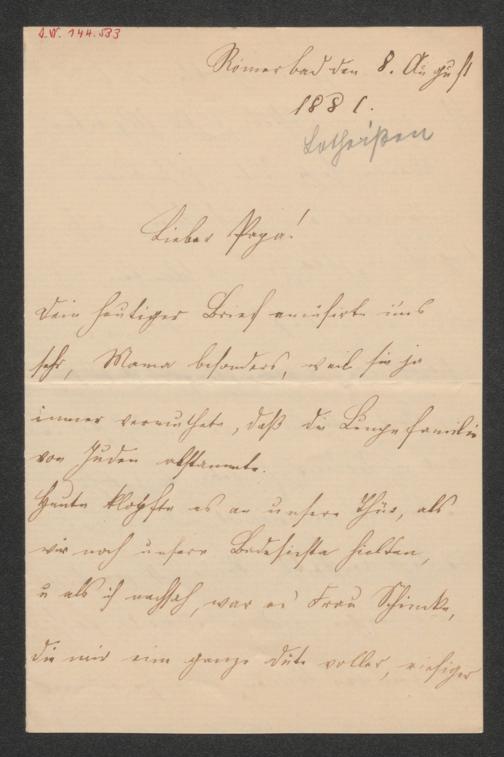 I.N. 144.533
Römerbad den 8. August
1881.
Lotheißen
Lieber Papa!
Dein heutiger Brief amüsirte uns
sehr, Mama besonders, weil sie ja
immer vermuthete, daß die familie
von Juden abstammte.
Heute klopfte es an unsere Thür, als
wir noch unsere hielten,
u als ich nachsah, war es Frau Schimke,
die mir eine ganze Düte voller, riesiger